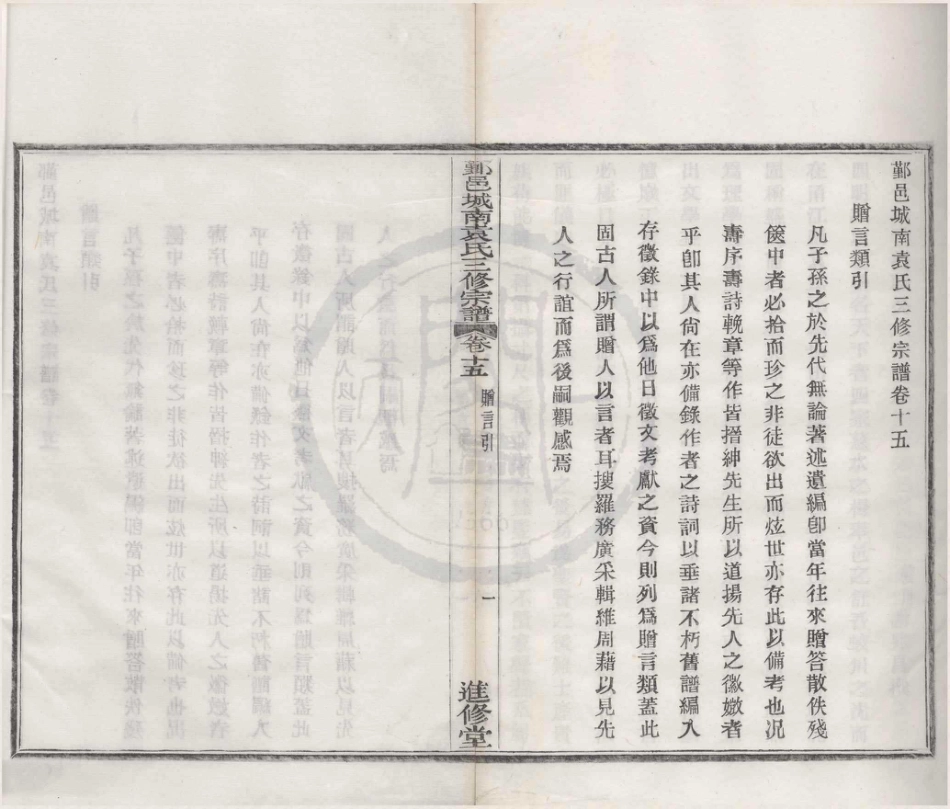 鄞邑城南袁氏三修宗譜卷十五
贈言類引
凡子孫之於先代無論著述遺編卽當年往來贈答散佚殘
篋中者必拾而珍之非徒欲出而炫世亦存此以備考也況
壽序壽詩輓章等作皆搢紳先生所以道揚先人之徽媺者
乎卽其人尙在亦備錄作者之詩詞以垂諸不朽舊譜編入
存徵錄中以爲他日徵文考獻之資今則列爲贈言類蓋此
固古人所謂贈人以言者耳搜羅務廣采輯維周藉以見先
人之行誼而爲後嗣觀感焉
鄞邑城南袁氏三修宗譜
卷十五
贈言引
一
進修堂